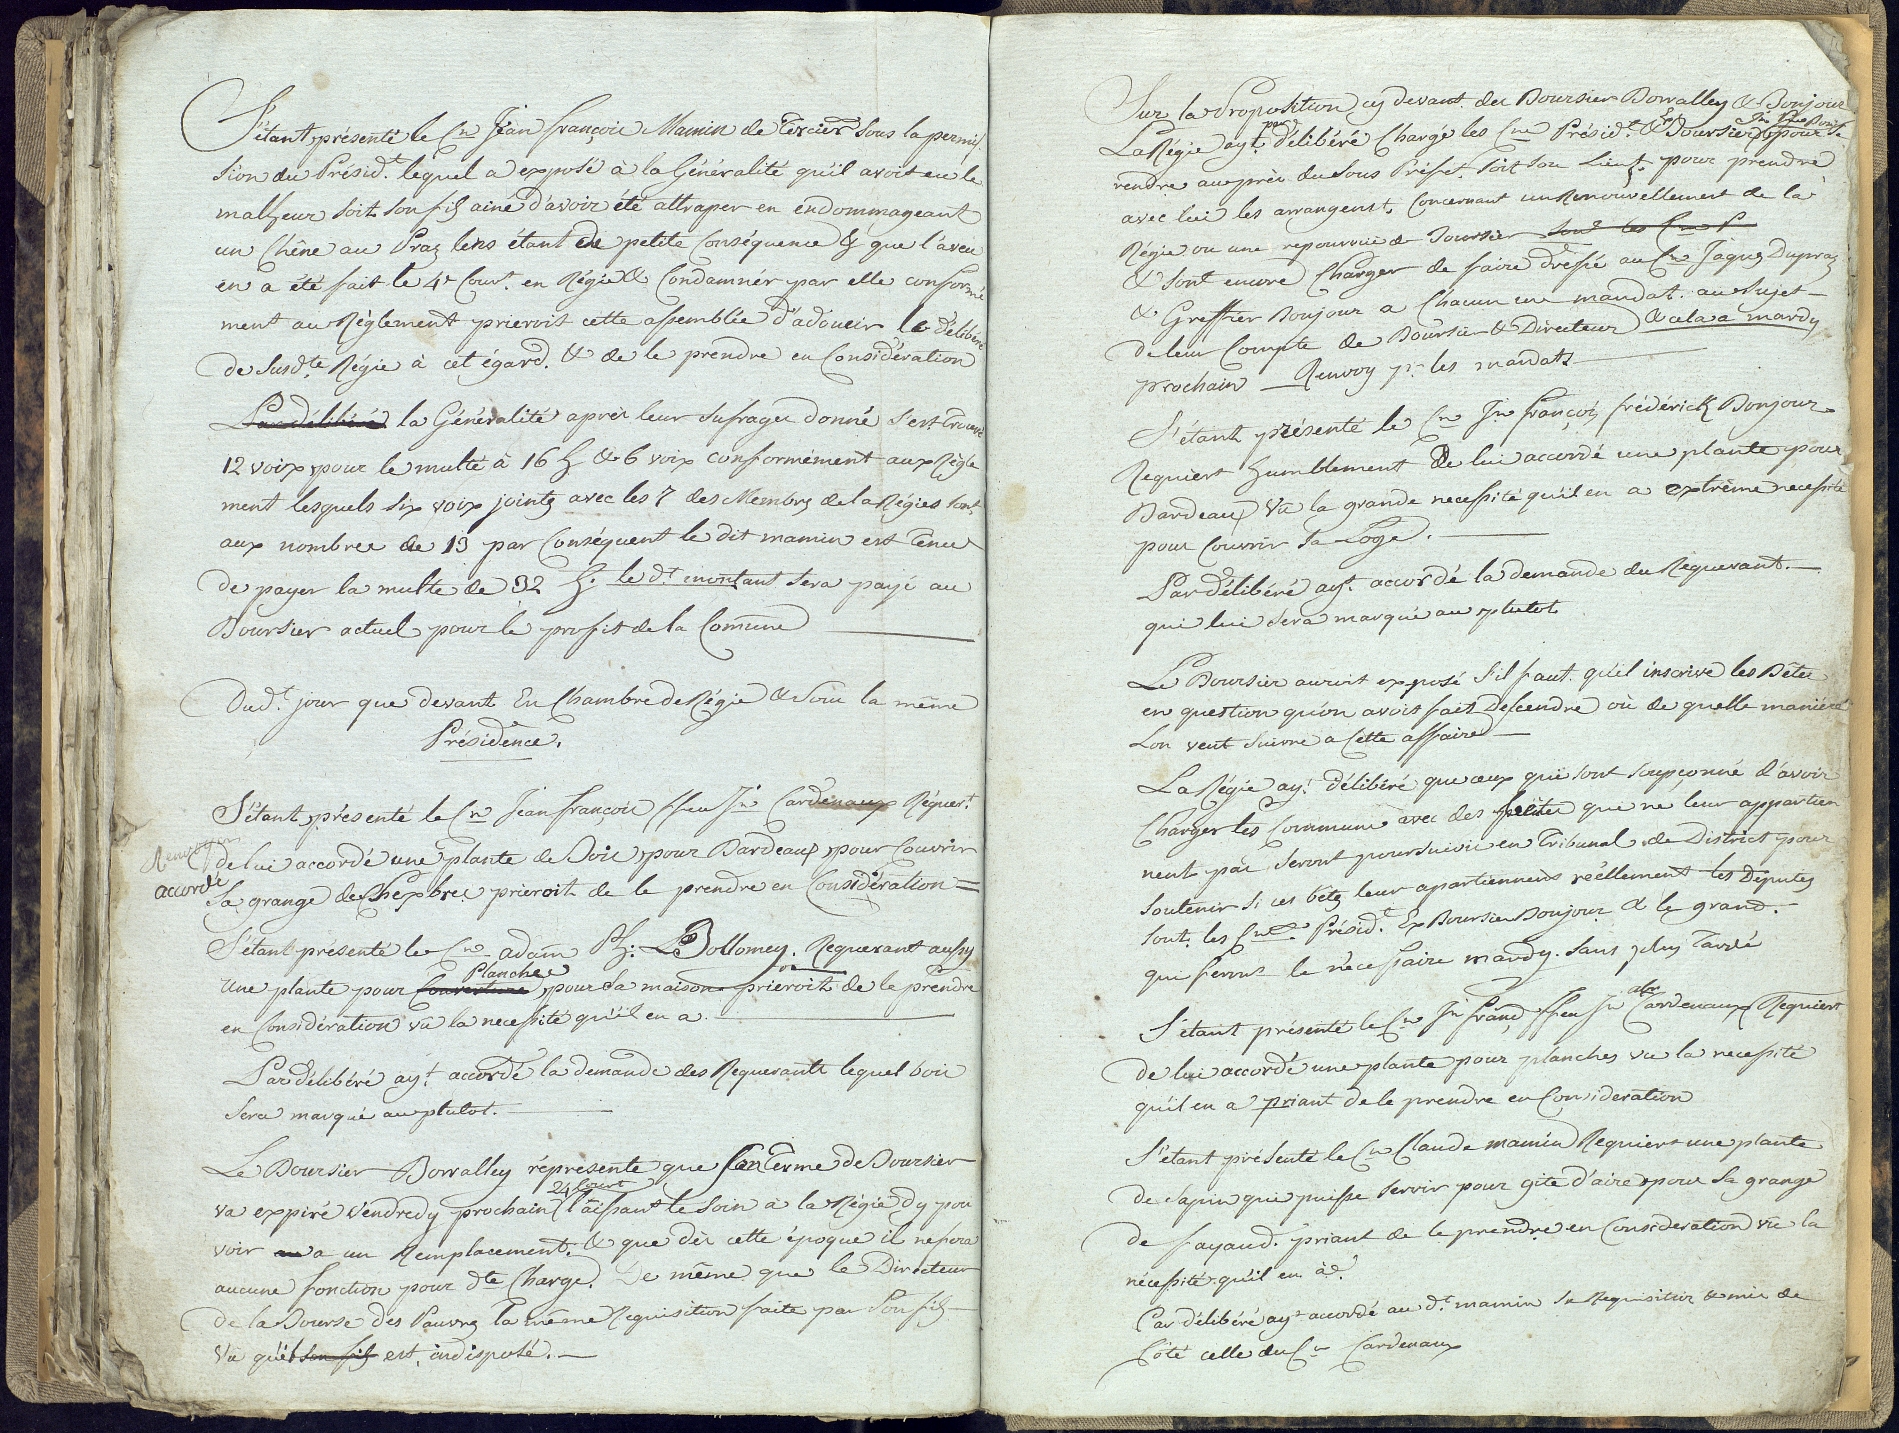 S'étant présenté le Cn Jean françois Mamin de Tercier sous la permis
sion du Présidt. lequel a exposé à la Généralité qu'il avoit eu le
malheur soit son fils ainé d'avoir été attraper en endommageant
un Chêne au Praz lens étant de petite Conséquence & que l'aveu
en a été fait le 4e Cour.t en Régie & Condamnér par elle conformé
ment au Règlement prieroit cette assemblée d'adoucir le délibéré
de susd.te Régie à cet égard. & de le prendre en Considération
Par délibéré la Généralité après leur sufrage donné s'est trouvé
12 voix pour le multé à 16 & 6 voix conformément aux Régle
ment lesquels six voix joints avec les 7 des Membres de la Régies sont
aux nombre de 13 par Conséquent le dit mamin est tenu
de payer la multe de 32 le d.t montant sera payé au
Boursier actuel pour le profit de la Comune
Dud.t jour que devant En Chambre de Régie & sous la même
Présidence.
S'étant présenté le Cn Jean françois ffeu Jn Cardenaux Réquert.
Renvoyer
de lui accordé une plante de Bois pour Bardeaux pour Couvrir
accordé
Sa grange de Chexbres prieroit de le prendre en Considération =
S'étant présenté le Cn adam Ph: LeBollomey. Requerant aussy
Planches
une plante pour Couverture pour sa maison prieroit de le prendre
en Considération vû la necessité qu'il en a.
Par délibéré ay.t accordé la demande des Requerants lequel bois
sera marqué au plutot.
Le Boursier Borralley réprésente que son terme de Boursier
24 Court
va expiré Vendredy prochain laissant le soin à la Régie dy pou
voir a un Remplacement. & que dès cette époque il ne fera
aucune fonction pour dte Charge. De même que le Directeur
de la Bourse des Pauvres la même Requisition faite par son fils
vu qu'il son fils est indisposé.
Sur la Proposition cy devant des Boursier Borralley & Bonjour
par
La Régie ayt. délibéré Chargé les Cns Présidt. & Boursier pour se
rendre auprès du Sous Préfet. soit son Lieut. pour prendre
avec lui les arrangemts. Concernant un Renouvellement de la
Régie ou une repourvue de Boursier
& sont encore Charger de faire dréssé au Cn Jaques Dupraz
& Greffier Bonjour a Chacun un mandat. au sujet
de leur Compte de Boursier & Directeur & cela a mardy
prochain Renvoy pr. les mandats
S'étant présenté le Cn Jn françois frédérich Bonjour
Requiert humblement de lui accordé une plante pour
Bardeaux vû la grande necessité qu'il en a extrême necessité
pour Couvrir sa Loge.
Par délibéré ayt. accordé la demande du Réquerant.
qui lui sera marqué au plutot.
Le Boursier auroit exposé s'il faut. qu'il inscrive les Bêtes
en question qu'on avoit fait Descendre où de quelle maniére
Lon veut suivre a Cette affaire
La Régie ayt. délibéré que ceux qui sont soupçonné d'avoir
Charger les Commune avec des que ne leur appartien
nent pas seront poursuivis en Tribunal de District pour
soutenir si ces bêtes leur apartiennent réellement les Députés
sont les Cns Présidt. Ex Boursier Bonjour & le grand.
qui feront le nécessaire mardy. sans plus tardé
abr
S'étant présenté le Cn Jn franç. ffeu Jn Cardenaux Requiert
de lui accordé une plante pour planches vu la necessité
qu'il en a priant de le prendre en Consideration
S'étant présenté le Cn Claude mamin Requiert une plante
de sapin qui puisse servir pour gite d'aire pour sa grange
de fayaud. priant de le prendre en Considération vû la
nécessité qu'il en a.
Par délibéré ayt. accordé au d.t mamin sa Requisition & mis de
Côté celle du Cn Cardenaux